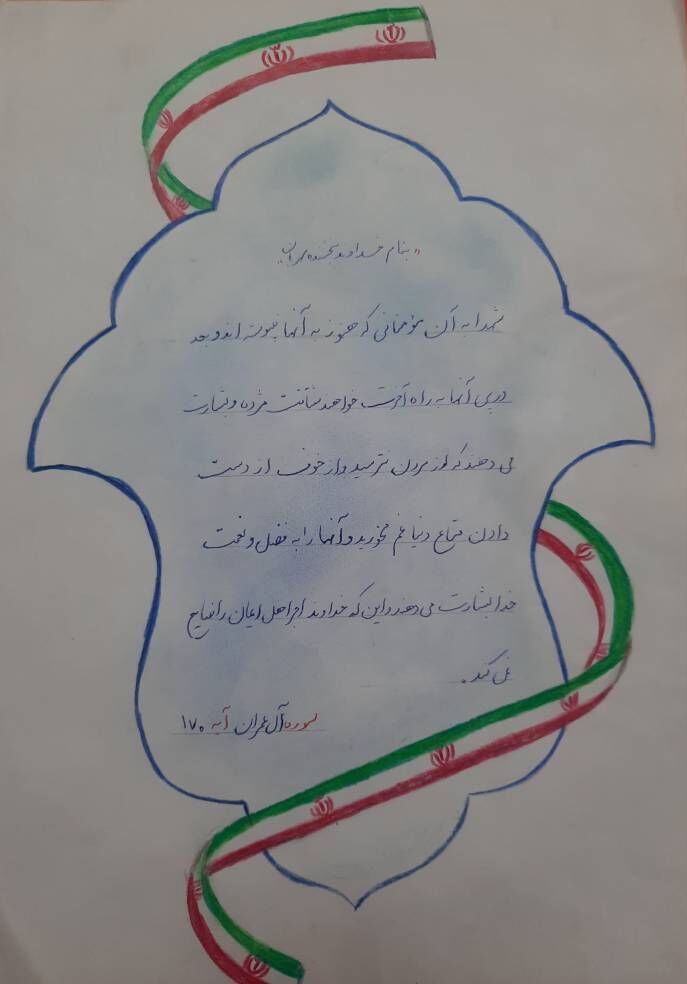 «بنام خداوند بخشنده مهربان»
شهدا به آن مؤمنانی که هنوز به آنها نپیوسته اند و بعد
در پی آنها به راه آخرت خواهند شتافت مژده و بشارت
می دهند که از مردن نترسید و از خوف از دست
دادن متاع دنیا غم مخورید و آنها را به فضل و نعمت
خدا بشارت می دهند و این که خداوند اجر اهل ایمان را ضایع
نمی کند.
سوره آل عمران آیه ۱۷۰